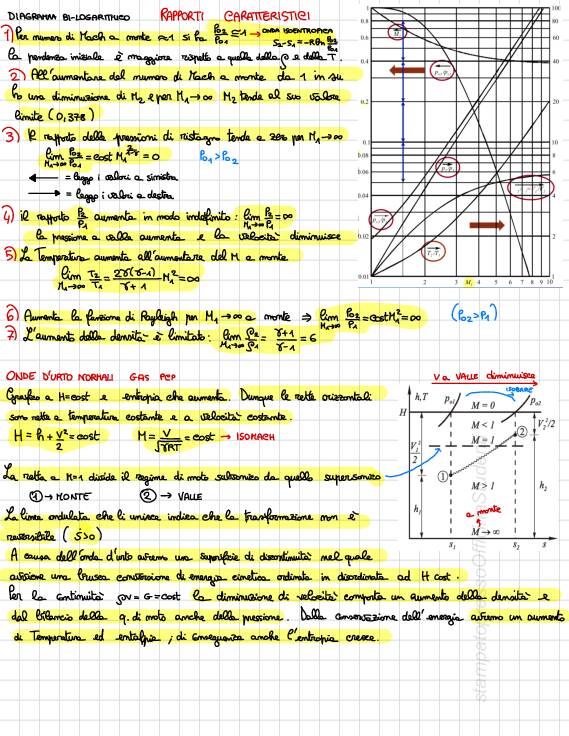 DIAGRAMMA BI-LOGARITMICO RAPPORTI CARATTERISTICI
1) Per numeri di Mach a monte ≈1 si ha P02/P01 ≅1 → ONDA ISOENTROPICA S2-S1=-Rln P02/P01
la pendenza iniziale è maggiore rispetto a quella della ρ e della T.
2) All'aumentare del numero di Mach a monte da 1 in su
ho una diminuzione di M2 e per M1→∞ M2 tende al suo valore
limite (0,378)
3) Il rapporto delle pressioni di ristagno tende a zero per M1→∞
lim M1→∞ P02/P01 = cost M1 = 0 P01>P02
← = leggo i valori a sinistra
→ = leggo i valori a destra
4) il rapporto P2/P1 aumenta in modo indefinito: lim M1→∞ P2/P1 = ∞
la pressione a valle aumenta e la velocità diminuisce
5) La Temperatura aumenta all'aumentare del M a monte
lim M1→∞ T2/T1 = 2γ(γ-1)/γ+1 M1² = ∞
6) Aumenta la funzione di Rayleigh per M1→∞ a monte ⇒ lim M1→∞ P02/P1 = cost M1² = ∞ (P02>P1)
7) L'aumento della densità è limitato: lim M1→∞ ρ2/ρ1 = γ+1/γ-1 = 6
1.0 0.8 0.6 0.4 0.2 0.10 0.08 0.06 0.04 0.02 0.01
100 80 60 40 20 10 8 6 4 2 1
1 2 M1 3 4 5 6 7 8 9 10
T2/T1
ONDE D'URTO NORMALI GAS PCP
Grafico a H=cost e entropia che aumenta. Dunque le rette orizzontali
sono rette a temperatura costante e a velocità costante.
H = h + V²/2 = cost M = V/√γRT = cost → ISOMACH
La retta a M=1 divide il regime di moto subsonico da quello supersonico
① → MONTE ② → VALLE
La linea ondulata che li unisce indica che la trasformazione non è
reversibile (Ṡ>0)
A causa dell'onda d'urto avremo una superficie di discontinuità nel quale
avviene una brusca conversione di energia cinetica ordinata in disordinata ad H cost.
Per la continuità ρV = G = cost la diminuzione di velocità comporta un aumento della densità e
dal bilancio della q. di moto anche della pressione. Dalla conservazione dell'energia avremo un aumento
di Temperatura ed entalpia, di conseguenza anche l'entropia cresce.
V a VALLE diminuisce
ISOBARE
h,T p01 M = 0 p02
H
M < 1 V2²/2
M = 1 ②
V1²/2
① M > 1
h1 h2
a monte
M → ∞
s1 s2 s